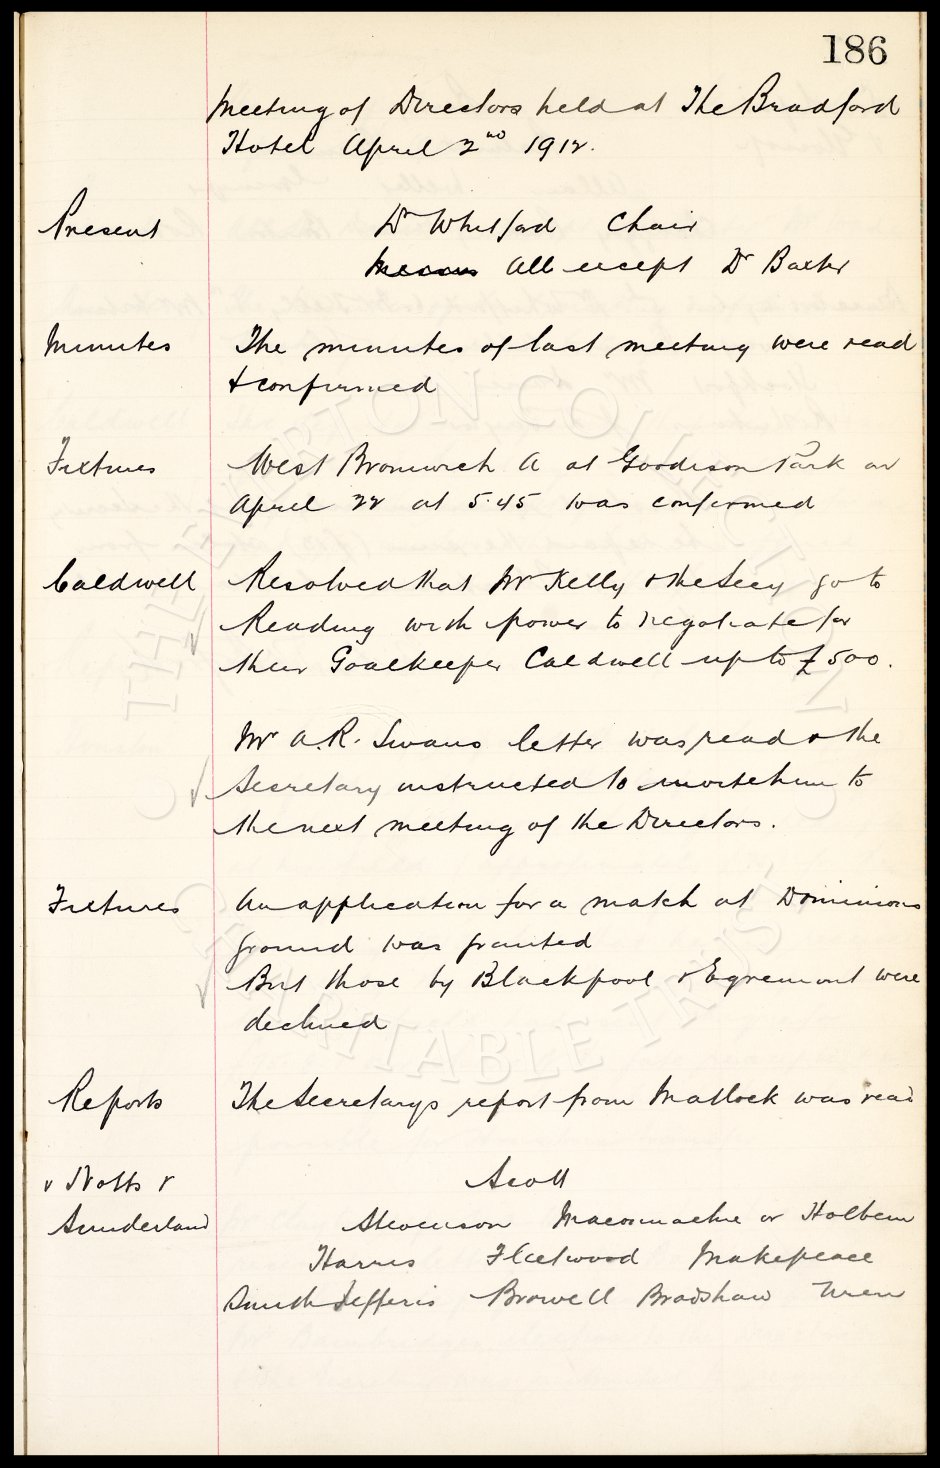 186
Meeting of Directors held at The Bradford
Hotel April 2nd 1912.
Present Dr Whitford Chair
All except Dr Baxter
Minutes The minutes of last meeting were read
& confirmed
Fixtures West Bromwich A at Goodison Park on
April 22 at 5.45 was confirmed
Caldwell Resolved that Mr Kelly & the Secy go to
Reading with power to negotiate for
their Goalkeeper Caldwell up to £500.
Mr A.R. Swans letter was read & the
Secretary instructed to invite him to
the next meeting of the Directors.
Fixtures An application for a match at Dominions
ground was granted
But those by Blackpool & Egremont were
declined
Reports The Secretarys report from Matlock was read
v Notts v Scott
Sunderland Stevenson Maconnachie or Holbem
Harris Fleetwood Makepeace
Smith Jefferis Browell Bradshaw Uren
THE EVERTON COLLECTION
CHARITABLE TRUST